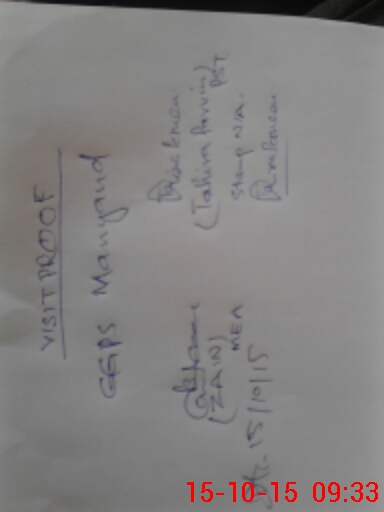 VISIT PROOF
GGPS Manyand
(ZAIN)
MEA
Dt:- 15/10/15
(Tahira Parvin)
PST
Stamp N.A.
15-10-15 09:33